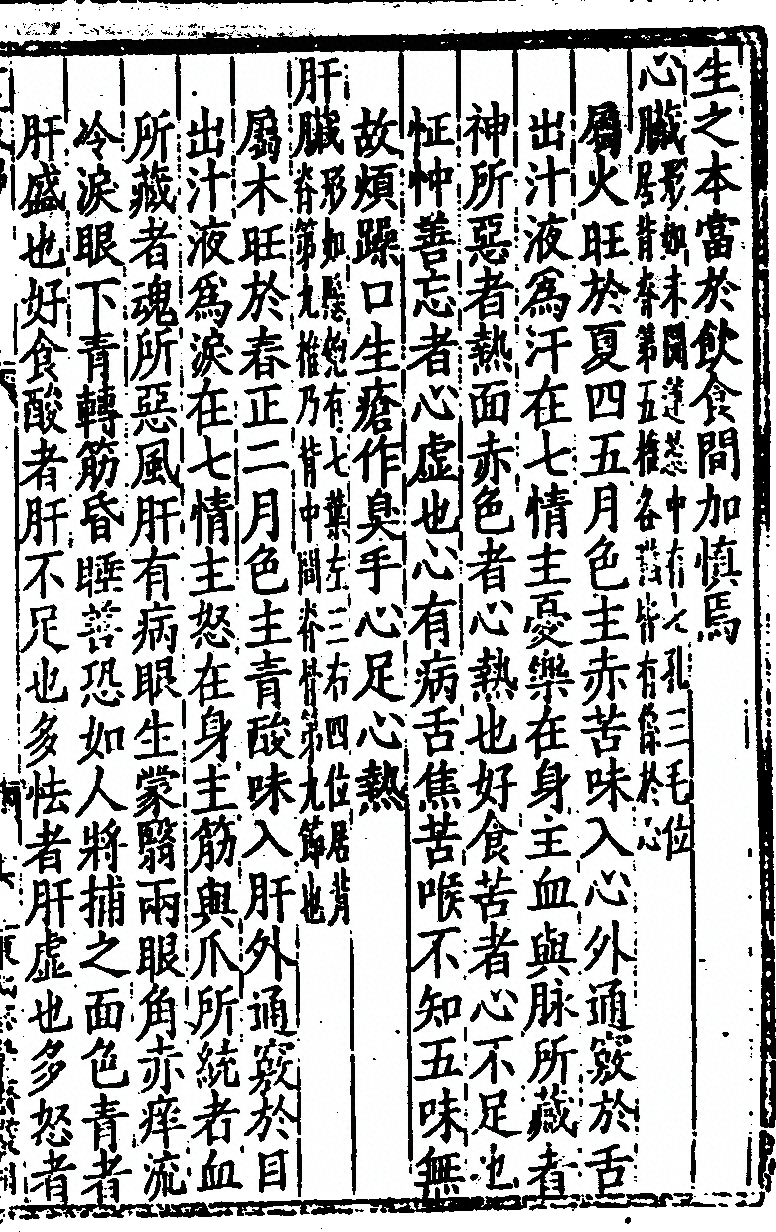 生之本當於飲食間加慎焉
心臟形如未開蓮蕊中有七孔三毛位
居背脊第五椎各臟皆有係於心
屬火旺於夏四五月色主赤苦味入心外通竅於舌
出汁液為汗在七情主憂樂在身主血與脉所藏者
神所惡者熱面赤色者心熱也好食苦者心不足也
怔忡善忘者心虛也心有病舌焦苦喉不知五味無
故煩躁口生瘡作臭手心足心熱
肝臟形如懸匏有七葉左三右四位居背
脊第九椎乃背中間脊骨第九節也
屬木旺於春正二月色主青酸味入肝外通竅於目
出汁液為淚在七情主怒在身主筋與爪所統者血
所藏者魂所惡風肝有病眼生蒙翳兩眼角赤痒流
冷淚眼下青轉筋昏睡善恐如人將捕之面色青者
肝盛也好食酸者肝不足也多怯者肝虛也多怒者